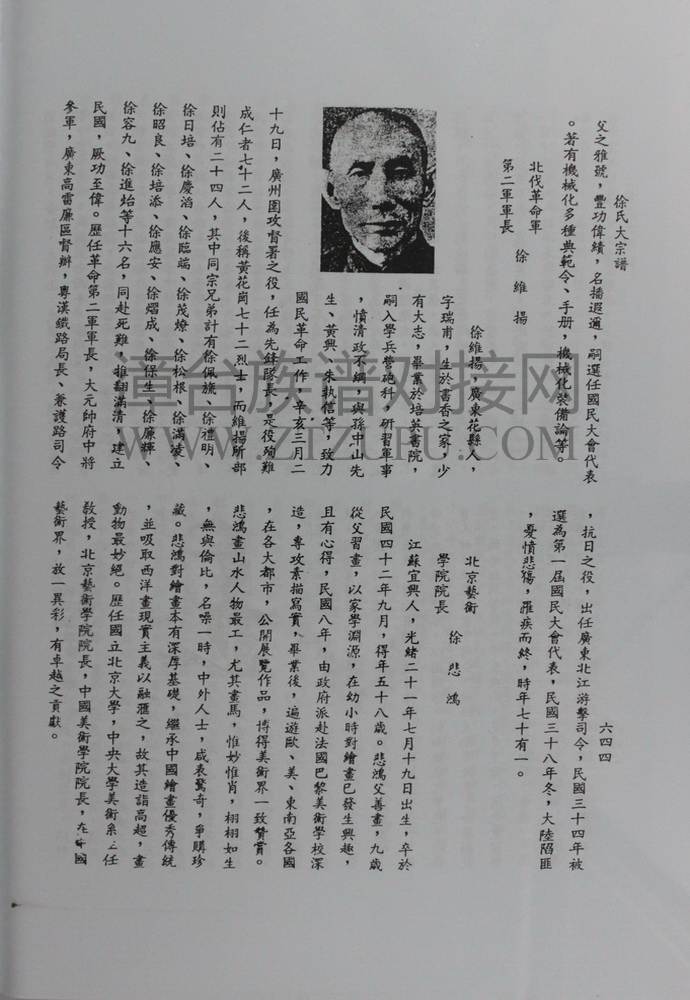 徐氏大宗譜
六四四
父之雅號，豐功偉績，名播遐邇，嗣選任國民大會代表
。著有機械化多種典範令、手册，機械化裝備論等。
北伐革命軍
第二軍軍長
徐維揚
徐維揚，廣東花縣人，
字瑞甫，生於書香之家，少
有大志，畢業於培英書院，
嗣入學兵營砲科，研習軍事
，憤清政不綱，與孫中山先
生、黃興、朱執信等，致力
國民革命工作，辛亥三月二
十九日，廣州圍攻督署之役，任為先鋒隊長，是役殉難
成仁者七十二人，後稱黃花崗七十二烈士，而維揚所部
則佔有二十四人，其中同宗兄弟計有徐佩旒、徐禮明、
徐日培、徐慶滔、徐臨端、徐茂燎、徐松根、徐滿凌、
徐昭良、徐培添、徐應安、徐熠成、徐保生、徐廉輝、
徐容九、徐進炲等十六名，同赴死難，推翻滿清，建立
民國，厥功至偉。歷任革命第二軍軍長，大元帥府中將
參軍，廣東高雷廉區督辦，粵漢鐵路局長、兼護路司令
，抗日之役，出任廣東北江游擊司令，民國三十四年被
選為第一屆國民大會代表，民國三十八年冬，大陸陷匪
，憂憤悲傷，罹疾而終，時年七十有一。
北京藝術
學院院長
徐悲鴻
江蘇宜興人，光緒二十一年七月十九日出生，卒於
民國四十二年九月，得年五十八歲。悲鴻父善畫，九歲
從父習畫，以家學淵源，在幼小時對繪畫已發生興趣，
且有心得，民國八年，由政府派赴法國巴黎美術學校深
造，專攻素描寫實，畢業後，遍遊歐、美、東南亞各國
，在各大都市，公開展覽作品，博得美術界一致贊賞。
悲鴻畫山水人物最工，尤其畫馬，惟妙惟肖，栩栩如生
，無與倫比，名噪一時，中外人士，咸表驚奇，爭購珍
藏。悲鴻對繪畫本有深厚基礎，繼承中國繪畫優秀傳統
，並吸取西洋畫現實主義以融滙之，故其造詣高超，畫
動物最妙絕。歷任國立北京大學，中央大學美術系主任
教授，北京藝術學院院長，中國美術學院院長，在中國
藝術界，放一異彩，有卓越之貢獻。
章台族谱对接网
WWW.ZTZUPU.COM